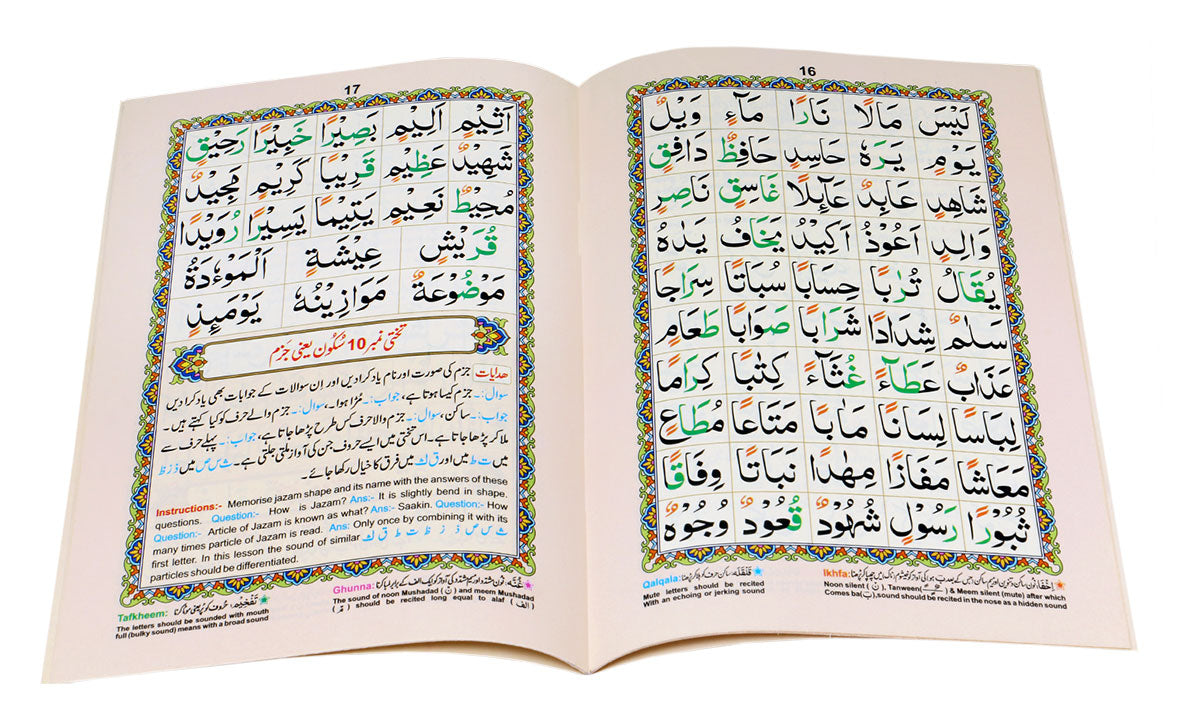 16
لَيْسَ مَالًا نَارًا مَآءٍ وَيْلٌ
يَوْمٍ يَرَهٗ حَاسِدٍ حَافِظٌ دَافِقٍ
شَاهِدٍ عَابِدٌ عَآئِلًا غَاسِقٍ نَاصِرٍ
وَالِدٍ اَعُوْذُ اَكِيْدُ يَخَافُ يَدٰهُ
يُقَالُ تُرٰبًا حِسَابًا سُبَاتًا سِرَاجًا
سَلٰمٌ شِدَادًا شَرَابًا صَوَابًا طَعَامٍ
عَذَابٌ عَطَآءً غُثَآءً كِتٰبًا كِرَامًا
لِبَاسًا لِسَانًا مَاٰبًا مَتَاعًا مُطَاعٍ
مَعَاشًا مَفَازًا مِهٰدًا نَبَاتًا وِفَاقًا
ثُبُوْرًا رَسُوْلٍ شُهُوْدٌ قُعُوْدٌ وُجُوْهٌ
اِخْفَا:
Ikhfa:
Noon silent (نْ), Tanween( ) & Meem silent (mute) after which
Comes ba(ب),sound should be recited in the nose as a hidden sound
قَلْقَلَه: ساکن حرف کو ہلا کر پڑھنا
Qalqala:
Mute letters should be recited
With an echoing or jerking sound
17
اَثِيْمٍ اَلِيْمٍ بَصِيْرًا خَبِيْرًا رَحِيْقٍ
شَهِيْدٌ عَظِيْمٍ قَرِيْبًا كَرِيْمٍ مَجِيْدٌ
مُحِيْطٌ نَعِيْمٍ يَتِيْمًا يَسِيْرًا رُوَيْدًا
قُرَيْشٍ عِيْشَةٍ اَلْمَوْءٗدَةُ
مَوْضُوْعَةٌ مَوَازِيْنُهٗ يَوْمَئِذٍ
تختی نمبر 10 سُکُون یعنی جَزم
ھدایات جزم کی صورت اور نام یاد کرا دیں اور اِن سوالات کے جوابات بھی یاد کرا دیں
سوال:۔ جزم کیسا ہوتا ہے، جواب:۔ مُڑا ہوا۔، سوال:۔ جزم والے حرف کو کیا کہتے ہیں۔
جواب:۔ ساکن، سوال:۔ جزم والا حرف کس طرح پڑھا جاتا ہے، جواب:۔ پہلے حرف سے
ملا کر پڑھا جاتا ہے۔ اس تختی میں ایسے حروف جن کی آواز ملتی جلتی ہے۔ ث س ص میں ذ ز ظ
میں ت ط میں اور ق ک میں فرق کا خیال رکھا جائے۔
Instructions:- Memorise jazam shape and its name with the answers of these
questions. Question:- How is Jazam? Ans:- It is slightly bend in shape.
Question:- Article of Jazam is known as what? Ans:- Saakin. Question:- How
many times particle of Jazam is read. Ans: Only once by combining it with its
first letter. In this lesson the sound of similar ث س ص ذ ز ظ ت ط ق ک
particles should be differentiated.
غُنَّه: نون مشدّد اور میم مشدّد کی آواز کو ایک الف کے برابر لمبا کرنا
Ghunna:
The sound of noon Mushadad (نّ) and meem Mushadad
(مّ) should be recited long equal to alaf (الف)
تَفْخِيْم: حُروف کو پُر یعنی موٹا کرنا
Tafkheem:
The letters should be sounded with mouth
full (bulky sound) means with a broad sound